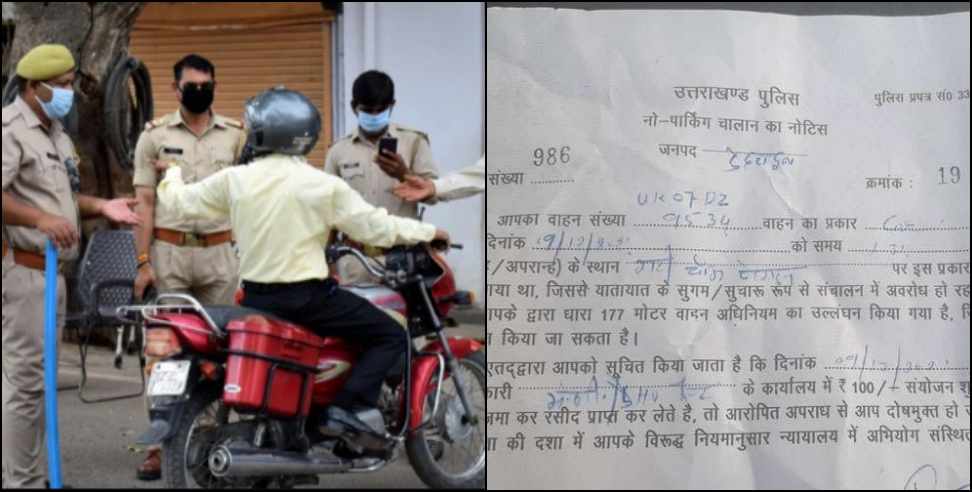 उत्तराखण्ड पुलिस
पुलिस प्रपत्र सं0 33
नो-पार्किंग चालान का नोटिस
जनपद देहरादून
संख्या 986
क्रमांक : 19
UK07DZ
आपका वाहन संख्या 9534 वाहन का प्रकार Car
दिनांक 19/12/ को समय
/अपरान्ह) के स्थान पर इस प्रकार
गया था, जिससे यातायात के सुगम/सुचारू रूप से संचालन में अवरोध हो रह
आपके द्वारा धारा 177 मोटर वाहन अधिनियम का उल्लंघन किया गया है,
किया जा सकता है।
एतद्द्वारा आपको सूचित किया जाता है कि दिनांक
के कार्यालय में ₹ 100/- संयोजन
जमा कर रसीद प्राप्त कर लेते है, तो आरोपित अपराध से आप दोषमुक्त हो
की दशा में आपके विरूद्ध नियमानुसार न्यायालय में अभियोग संस्थित